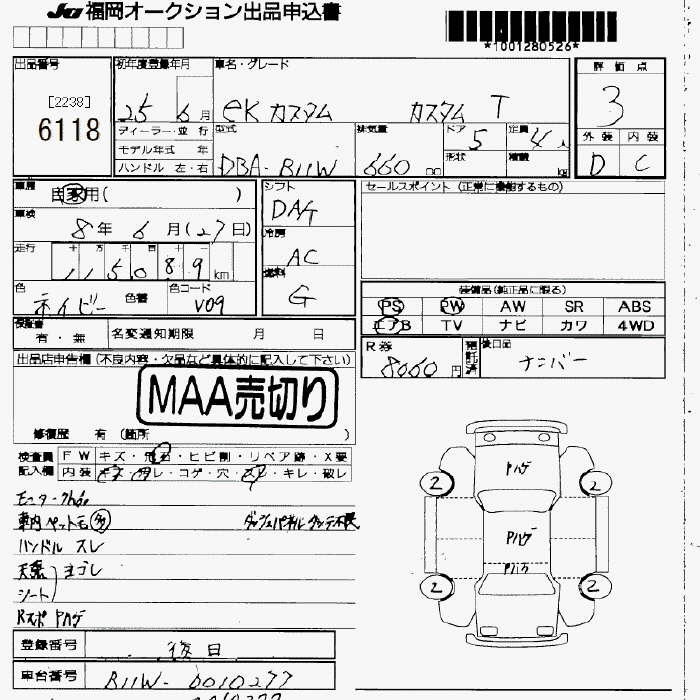 JU 福岡オークション出品申込書
*1001280526*
出品番号
[2238]
6118
初年度登録年月
25 6月
車名・グレード
eK カスタム カスタム T
評価点
3
外装 内装
D C
ディーラー・並行
モデル年式 年
ハンドル 左・右
型式
DBA-B11W
排気量
660 cc
ドア 5
形状
定員 4人
積載 kg
車歴
自家用( )
車検
8年 6月(27日)
走行
十 万 千 百 十 一
115089 km
色
ネイビー 色替
色コード
V09
シフト
DAT
冷房
AC
燃料
G
セールスポイント (正常に機能するもの)
装備品(純正品に限る)
PS PW AW SR ABS
エアB TV ナビ カワ 4WD
保証書
有・無
名変通知期限 月 日
R券
8060円
預託済
後日品
ナンバー
出品店申告欄(不良内容・欠品など具体的に記入して下さい)
MAA売切り
修復歴 有 (箇所 )
検査員
記入欄
FW キズ・飛石・ヒビ割・リペア跡・X要
内装 キズ・スレ・コゲ・穴・・キレ・破レ
車内ペット毛多
ハンドル スレ
天張
シート ヨゴレ
Rスポ Pハゲ
Pハゲ
Pハゲ
Pハゲ
2
2
2
2
登録番号
後日
車台番号
B11W-0010277
0010277